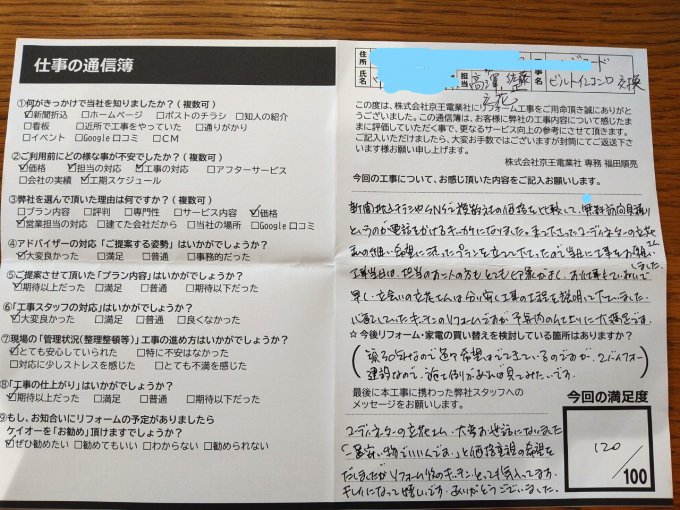 仕事の通信簿
①何がきっかけで当社を知りましたか?(複数可)
☑新聞折込 □ホームページ □ポストのチラシ □知人の紹介
□看板 □近所で工事をやっていた □通りがかり
□イベント □Google口コミ □CM
②ご利用前にどの様な事が不安でしたか?(複数可)
☑価格 ☑担当の対応 ☑工事の対応 □アフターサービス
□会社の実績 ☑工期スケジュール
③弊社を選んで頂いた理由は何ですか?(複数可)
□プラン内容 □評判 □専門性 □サービス内容 ☑価格
☑営業担当の対応 □建てた会社だから □当社の場所 □Google口コミ
④アドバイザーの対応「ご提案する姿勢」はいかがでしたか?
☑大変良かった □満足 □普通 □事務的だった
⑤ご提案させて頂いた「プラン内容」はいかがでしたか?
☑期待以上だった □満足 □普通 □期待以下だった
⑥「工事スタッフの対応」はいかがでしたか?
☑大変良かった □満足 □普通 □良くなかった
⑦現場の「管理状況(整理整頓等)」工事の進め方はいかがでしたか?
☑とても安心していられた □特に不安はなかった
□対応に少しストレスを感じた □とても不満を感じた
⑧「工事の仕上がり」はいかがでしたか?
☑期待以上だった □満足 □普通 □期待以下だった
⑨もし、お知合いにリフォームの予定がありましたら
ケイオーを「お勧め」頂けますでしょうか?
☑ぜひ勧めたい □勧めてもいい □わからない □勧められない
住所
氏名 担当 高澤 佐藤 立花 工事名 ビルトインコンロ交換
この度は、株式会社京王電業社にリフォーム工事をご用命頂き誠にありがと
うございました。この通信簿は、お客様に弊社の工事内容について感じたま
まに評価していただく事で、更なるサービス向上の参考にさせて頂きます。
ご記入いただけましたら、大変お手数ではございますが封筒にてご返送下さ
います様お願い申し上げます。
株式会社京王電業社 専務 福田順亮
今回の工事について、お感じ頂いた内容をご記入お願いします。
新聞折込チラシやSNSで複数社の価格を比較して、無料訪問見積り
というのが電話をかけるきっかけになりました。コーディネーターの立花
さんの細い希望に沿ったプランを立てて下さったので当日に工事をお願い
しました。
工事当日は、担当のお二人の方もとても印象が良く、お仕事もていねいで
早く、立会いの立花さんは分り易く工事の工程を説明して下さいました。
心配していたキッチンのリフォームですが予算内の仕上りに大満足です。
☆今後リフォーム・家電の買い替えを検討している箇所はありますか?
建設なので、施工例があれば見てみたいです。
最後に本工事に携わった弊社スタッフへの
メッセージをお願いします。
コーディネーターの立花さん、大変お世話になりました
「一番安い物でいいんです。」と価格重視の希望を
だしましたがリフォーム後のキッチン、とっても気に入ってます。
キレイになって嬉しいです。ありがとうございました。
今回の満足度
120
/100